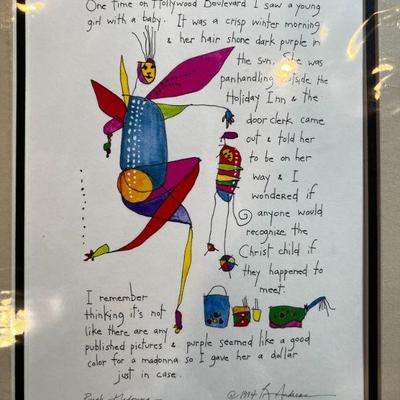 One time on Hollywood Boulevard I saw a young
girl with a baby. It was a crisp winter morning
& her hair shone dark purple in
the sun. She was
panhandling outside the
Holiday Inn & the
door clerk came
out & told her
to be on her
way & I
wondered if
anyone would
recognize the
Christ child if
they happened to
meet.
I remember
thinking it's not
like there are any
published pictures & purple seemed like a good
color for a madonna so I gave her a dollar
just in case.
Purple Madonna
© 1994 Andreas